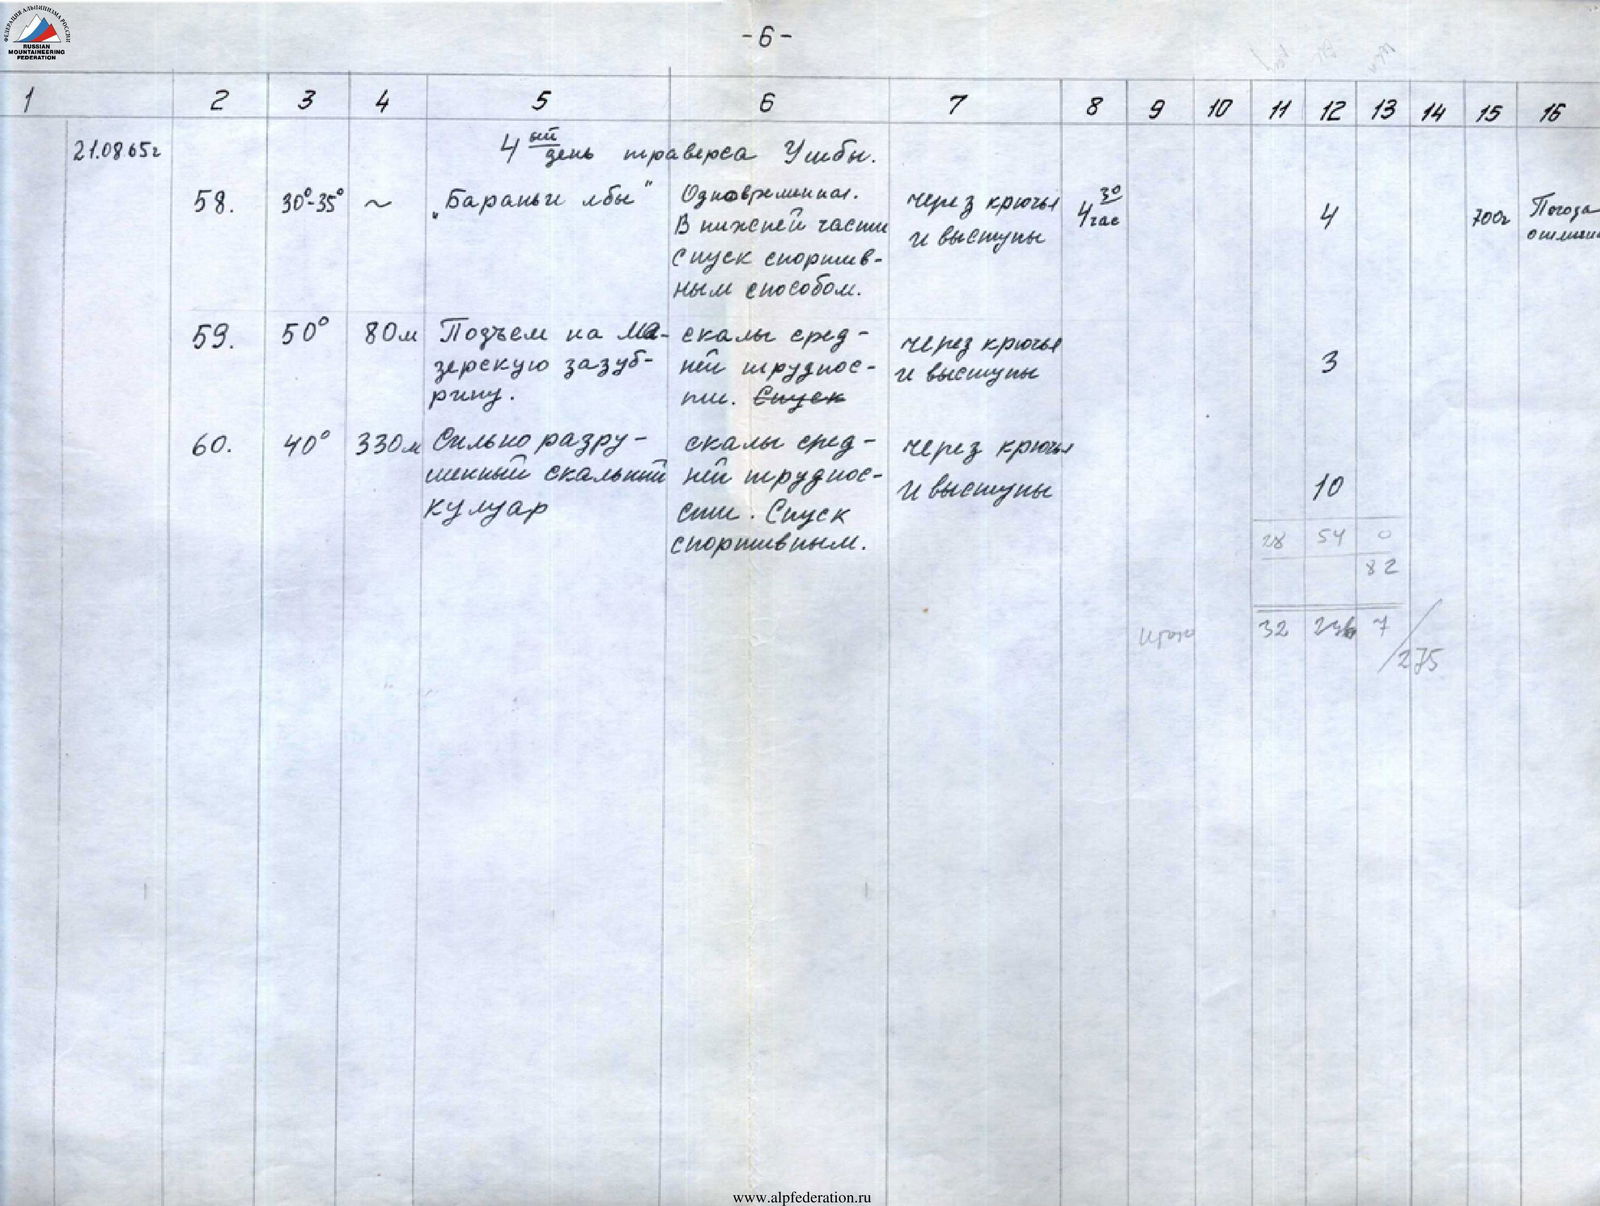 ФЕДЕРАЦИЯ АЛЬПИНИЗМА РОССИИ
RUSSIAN
MOUNTAINEERING
FEDERATION
-6-
1 2 3 4 5 6 7 8 9 10 11 12 13 14 15 16
21.08.65г 4ый день траверса Ушбы.
58. 30°-35° ~ "Бараньи лбы" Одновременная. через крючья 4 30 4 700г Погода
В нижней части и выступы час
спуск спортив-
ным способом.
59. 50° 80м Подъем на Ма- скалы сред- через крючья 3
зерскую зазуб- ней труднос- и выступы
рину. ти. Спуск
60. 40° 330м Сильно разру- скалы сред- через крючья 10
шенный скальный ней труднос- и выступы
кулуар сти. Спуск
спортивным.
28 54 0
82
итого 32 7
275
www.alpfederation.ru